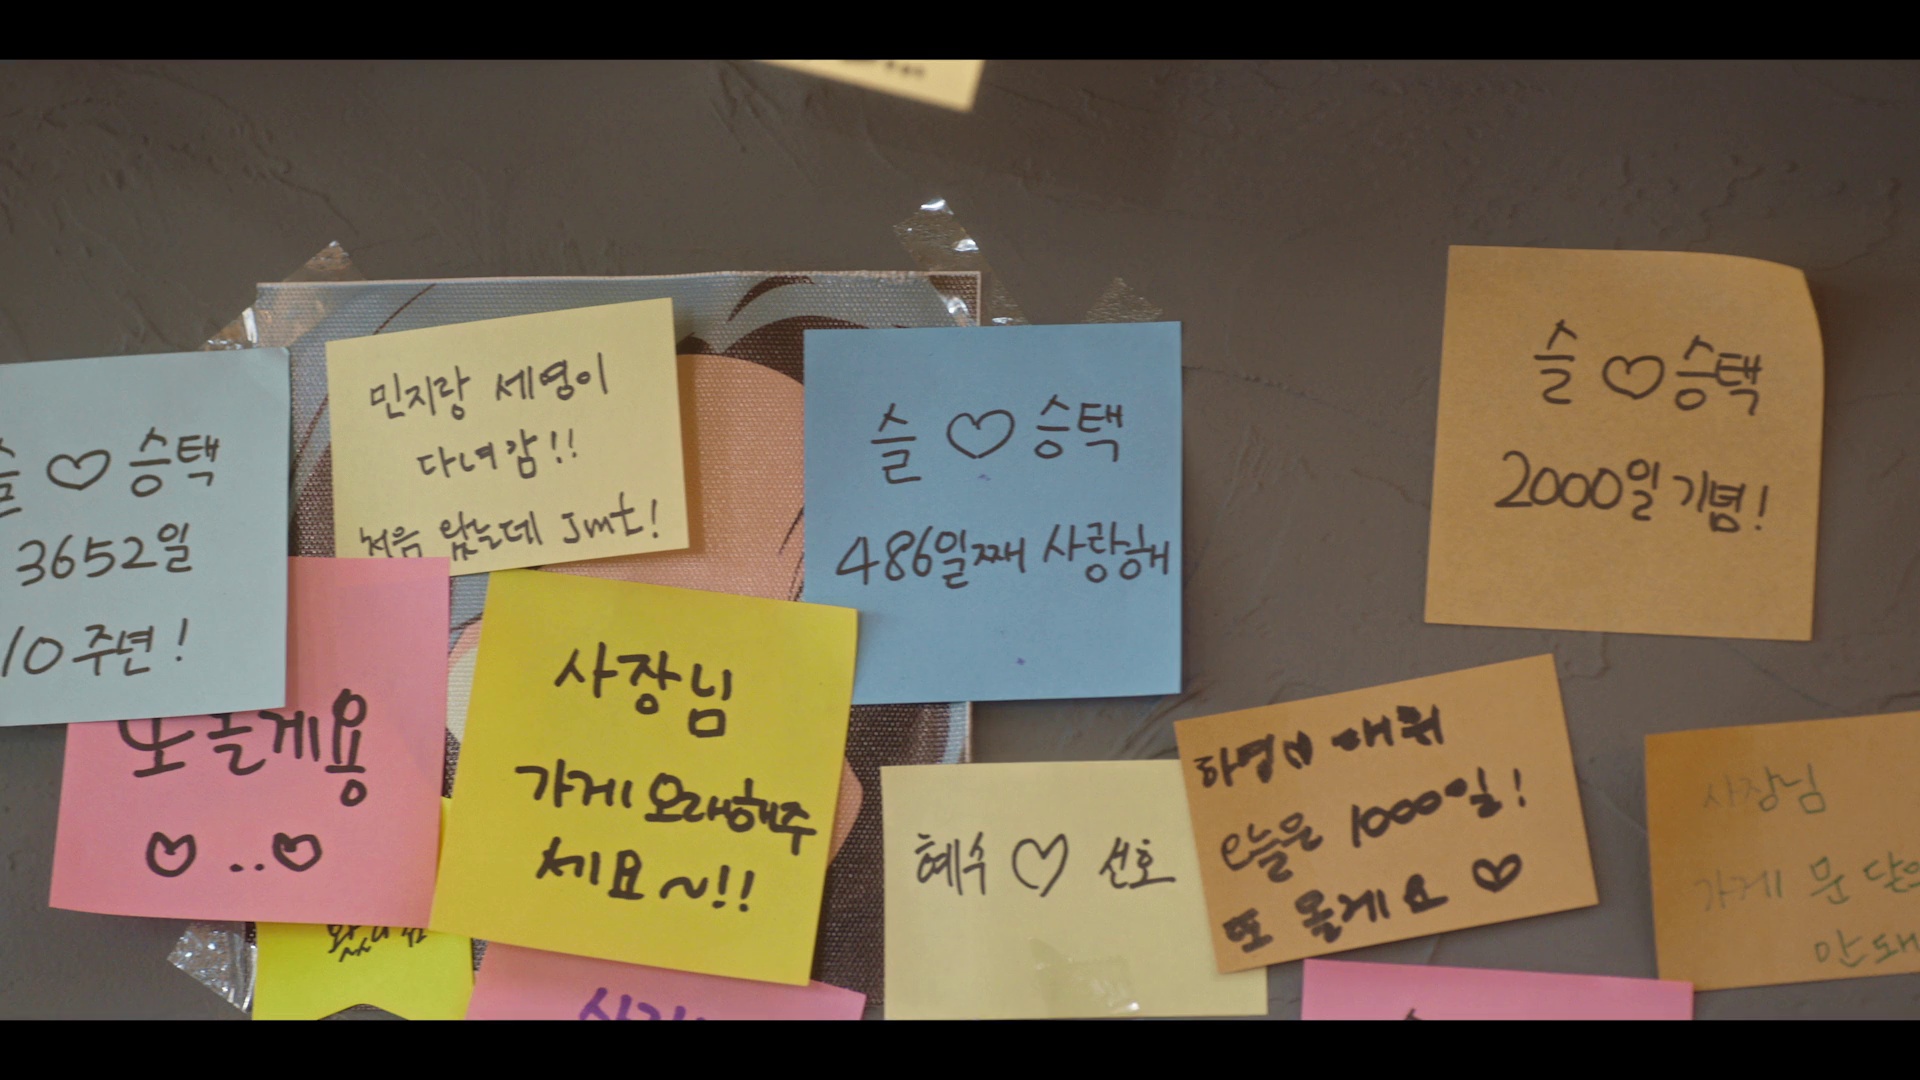 슬♡승택
3652일
10주년!
민지랑 세영이
다녀감!!
처음 왔는데 Jmt!
슬♡승택
486일째 사랑해
슬♡승택
2000일 기념!
또 올게용
♡..♡
사장님
가게 오래해주
세요~!!
혜수♡선호
오늘은 1000일!
또 올게요 ♡
사장님
가게 문 닫으
안돼